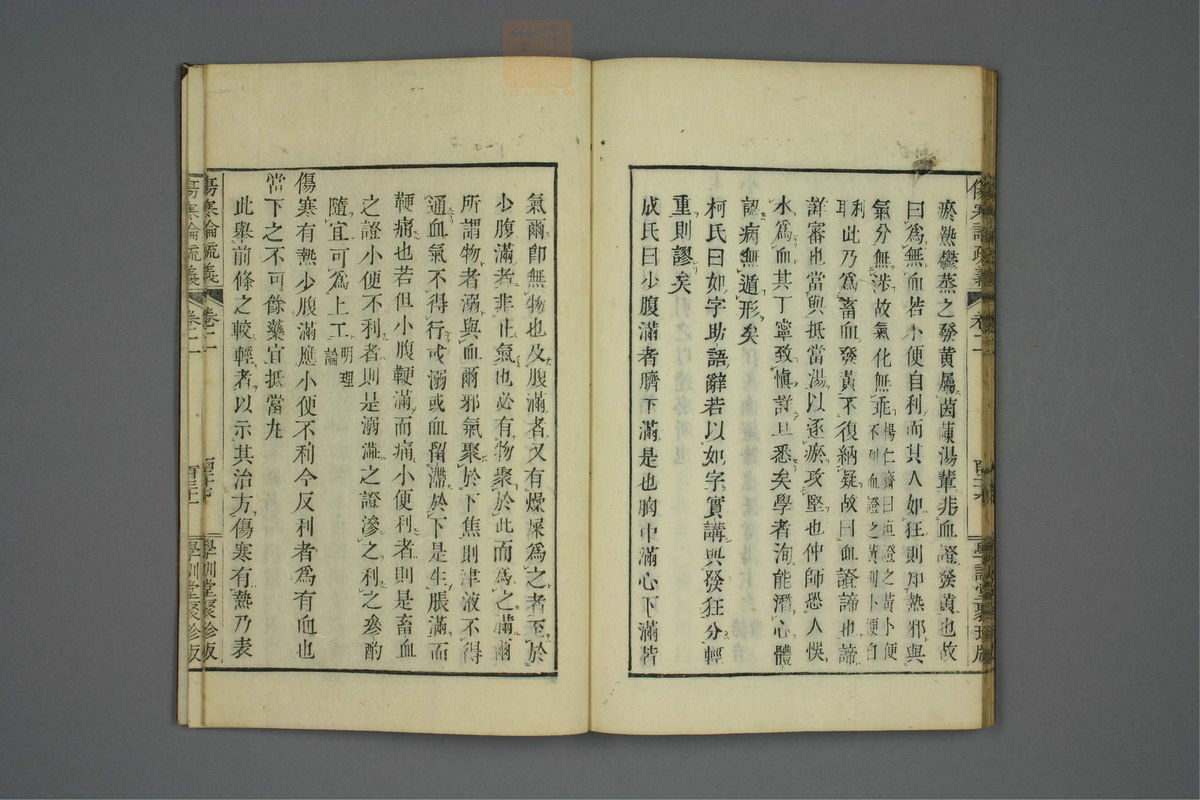 瘀熱鬱蒸之發黃屬茵蔯湯輩非血證發黃也故
曰爲無血若小便自利而其人如狂則卽熱邪與
氣分無渉故氣化無乖楊仁齋曰血證之黃小便
不利血證之黃則小便自
利耳此乃爲畜血發黃不復納疑故曰血證諦也諦
詳審也當與抵當湯以逐瘀攻堅也仲師恐人悞
水爲血其丁寧致愼詳且悉矣學者洵能潛心體
認病無遁形矣
柯氏曰如字助語辭若以如字實講與發狂分輕
重則謬矣
成氏曰少腹滿者臍下滿是也胸中滿心下滿若
氣爾卽無物也及腹滿者又有燥屎爲之者至於
少腹滿者非止氣也必有物聚於此而爲之滿爾
所謂物者溺與血爾邪氣聚於下焦則津液不得
通血氣不得行或溺或血留滯於下是生脹滿而
鞕痛也若但小腹鞕滿而痛小便利者則是畜血
之證小便不利者則是溺澁之證滲之利之參酌
隨宜可爲上工明理
論
傷寒有熱少腹滿應小便不利今反利者爲有血也
當下之不可餘藥宜抵當丸
此舉前條之較輕者以示其治方傷寒有熱乃表
傷寒論疏義
卷二
學訓堂聚珍版